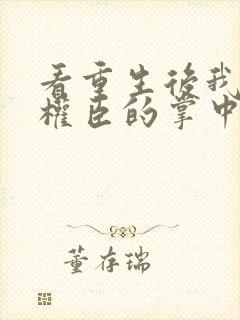 看重生後我
權臣的掌中
董存瑞